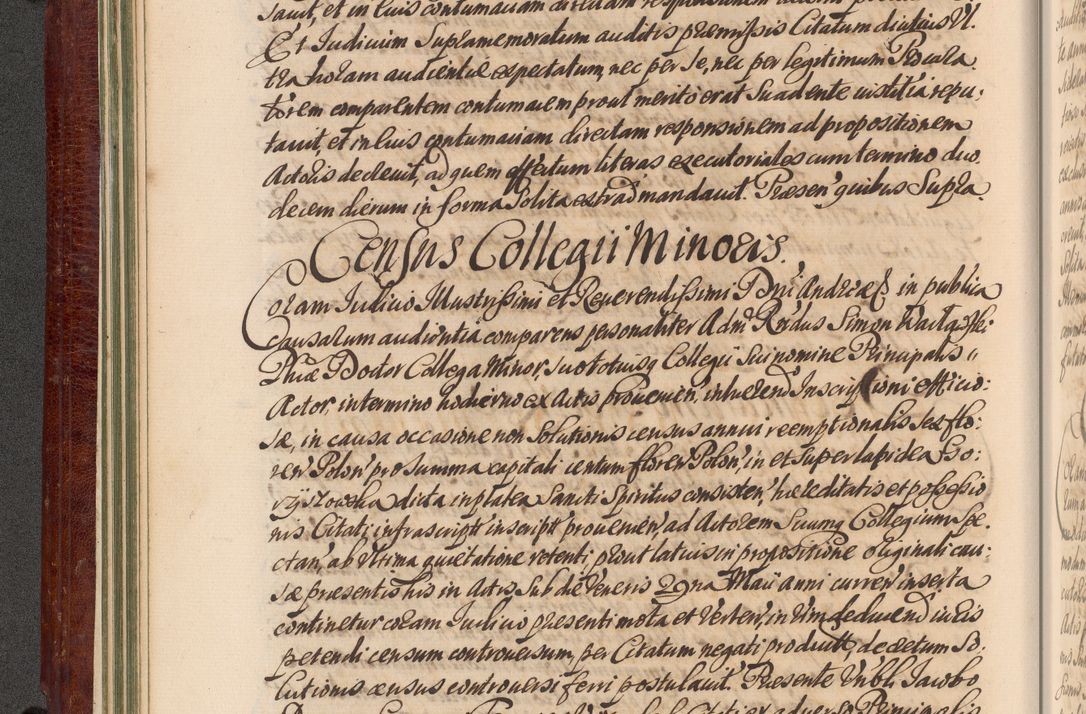 tavit, et in huius contumaciam directam responsionem
Et Iudicium Supramemoratum auditis praemissis Citatum diutius Ul,
tra horam audientiae expectatum, nec per se, nec per legitimum Procura,
torem comparentem contumacem prout merito erat Suadente iustitia repu,
tavit, et in huius contumaciam directam responsionem ad propositionem
Actoris decrevit, ad quem effectum literas executoriales cum termino duo,
decem dierum in forma Solita extrad mandavit. Praesen' quibus Supra
Census Collegii Minoris.
Coram Iudicio Illustrissimi et Reverendissimi Dni Andreae in publica
Causarum audientia comparens personaliter Adm Rndus Simon
Phiae Doctor Collega Minor, suo totiusq Collegii Sui nomine Principalis
Actor, in termino hodierno ex Actis provenien', inhaerend Inscriptioni officio:
sae, in causa occasione non Solutionis census annui reemptionalis sex flo:
ren' Polon' pro summa capitali centum floren' Polon', in et super lapidea Go,
dicta in platea Sancti Spiritus consisten', haereditatis et possessio
nis Citati infrascripti inscript' provenien', ad Actorem Suumq Collegium Spe,
ctan', ab ultima quietatione retenti, prout latius in propositione originali cau:
sae praesentis his in Actis Sub die Veneris 29na Maii anni curren' inserta
continetur coram Iudicio praesenti mota et verten', in vim deducend iuris
petendi censum controversum, per Citatum negati produxit, decretum So,
lutionis census controversi ferri postulavit. Praesente Nobli Iacobo
adverso Principalis